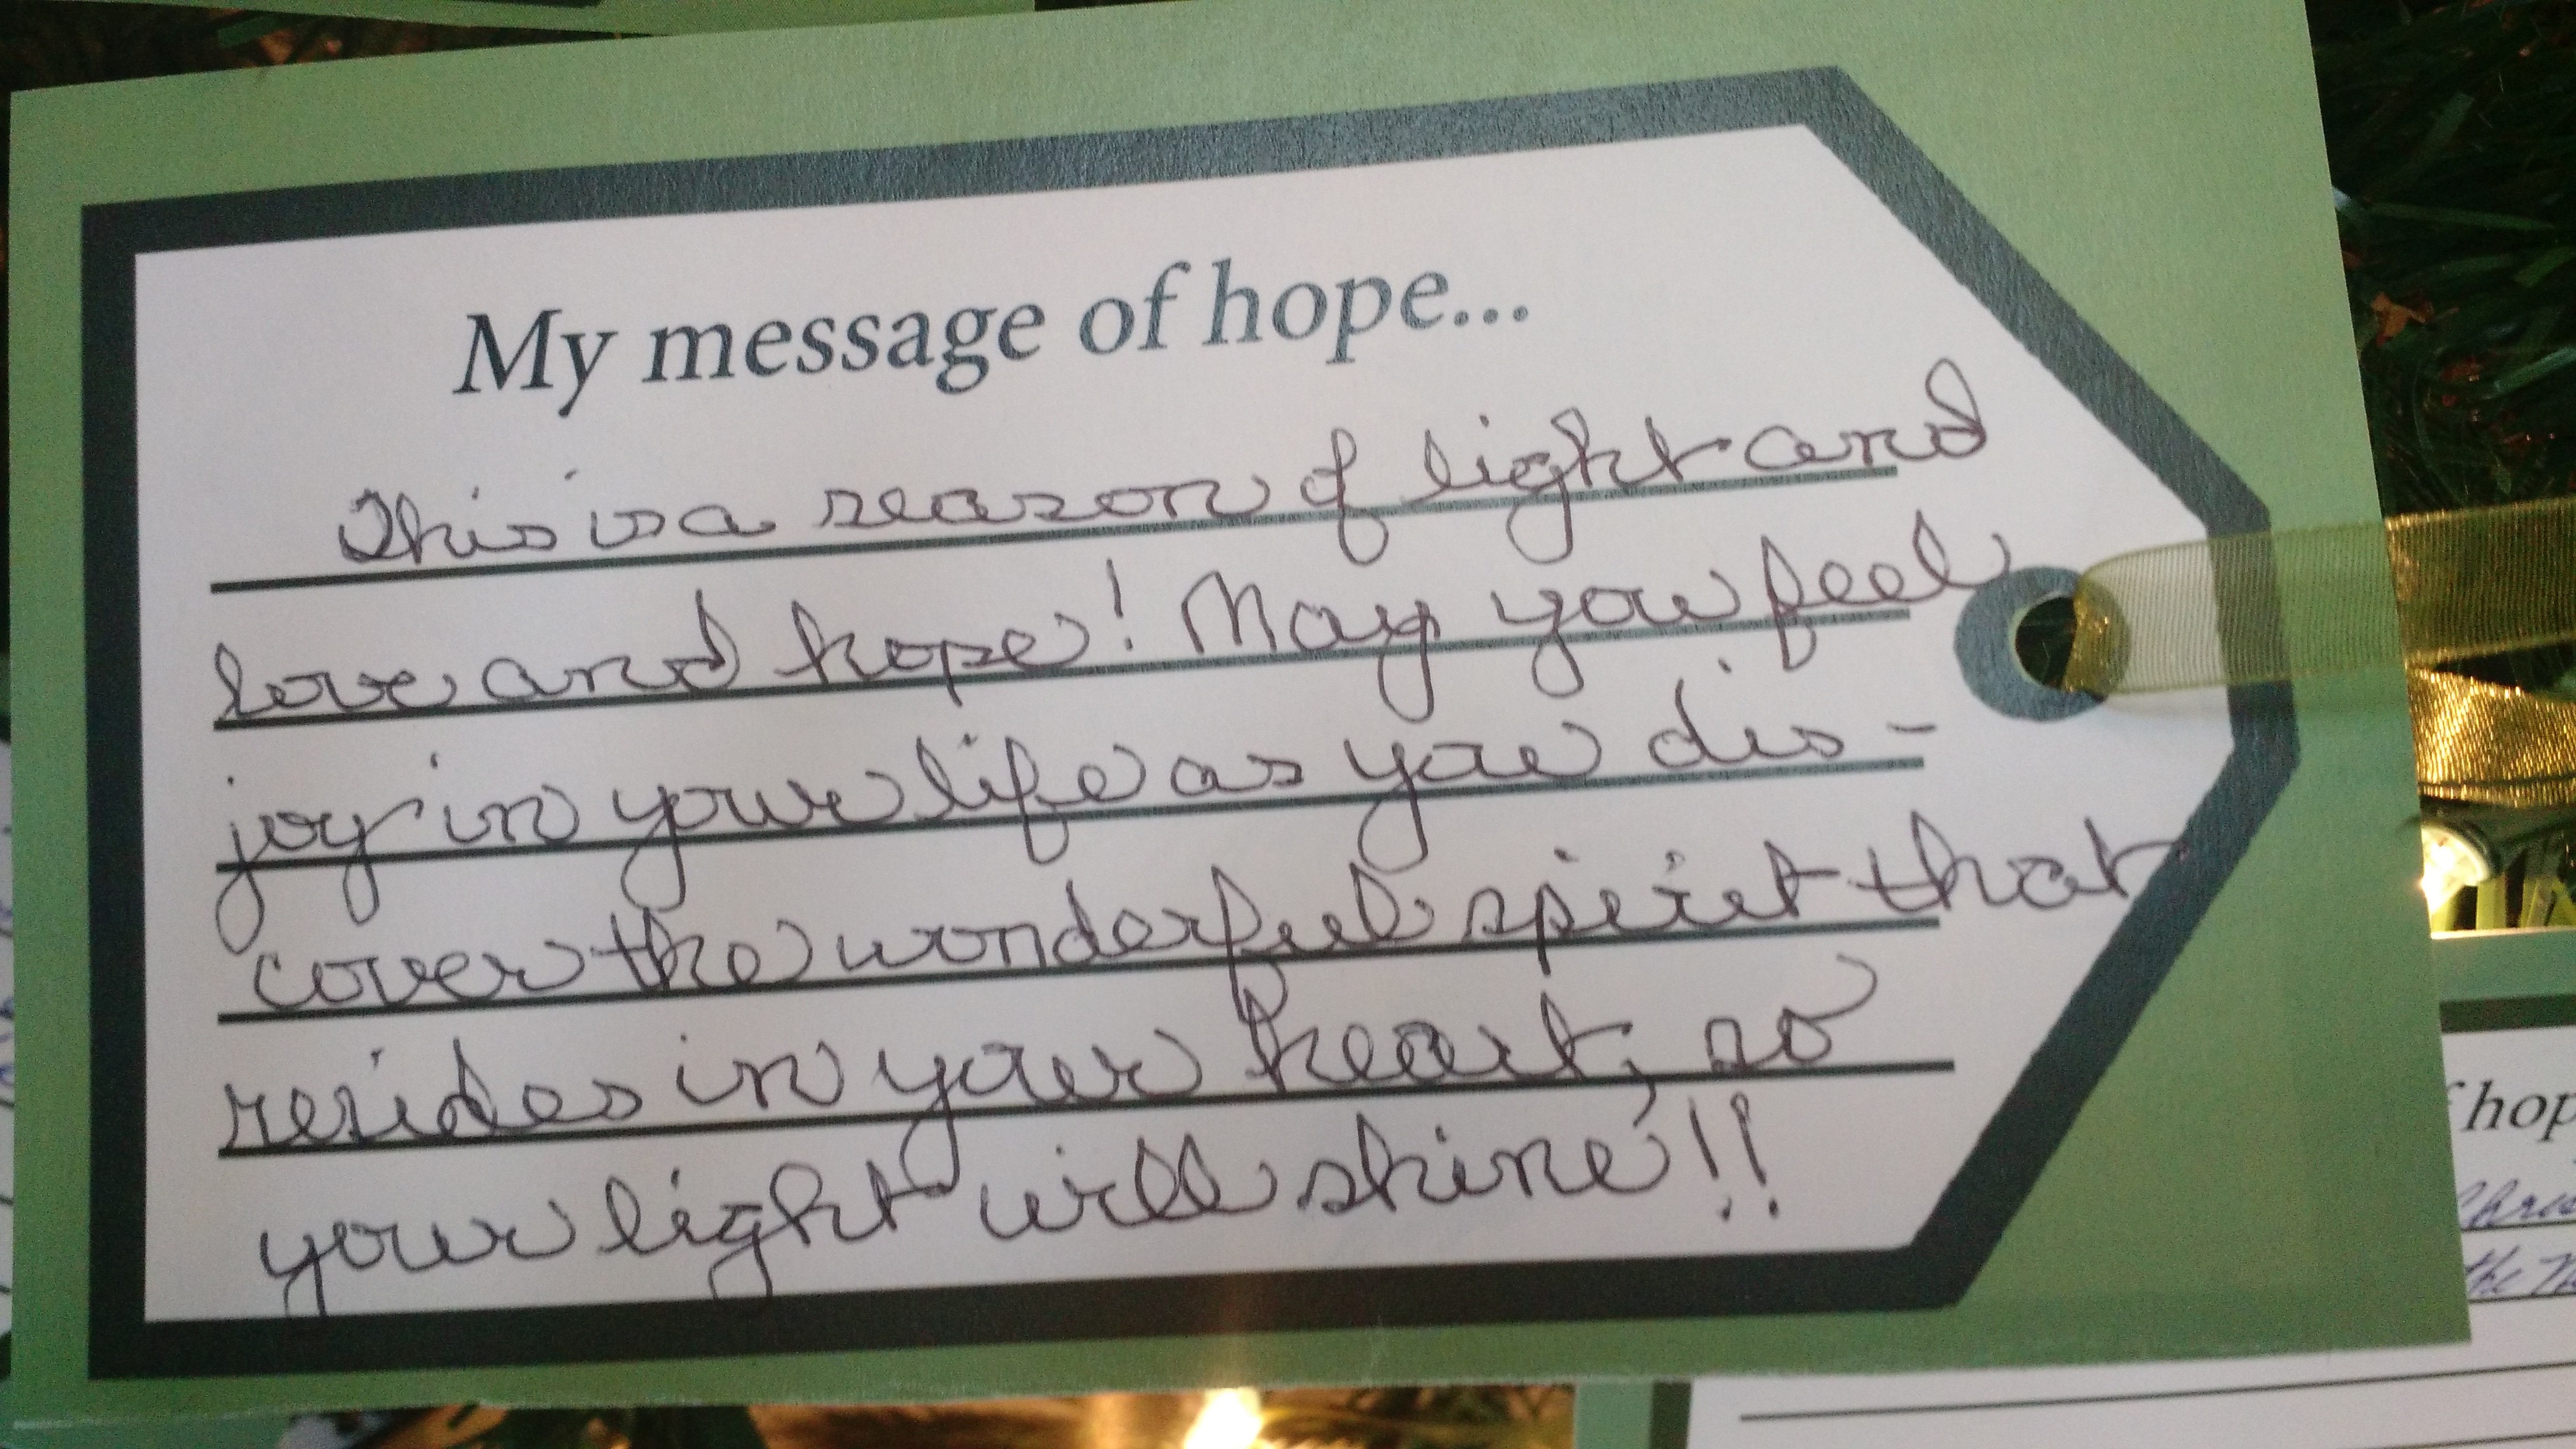 My message of hope...
This is a season of light and
love and hope! May you feel
joy in your life as you dis-
cover the wonderful spirit that
resides in your heart, so
your light will shine!!
hop
the